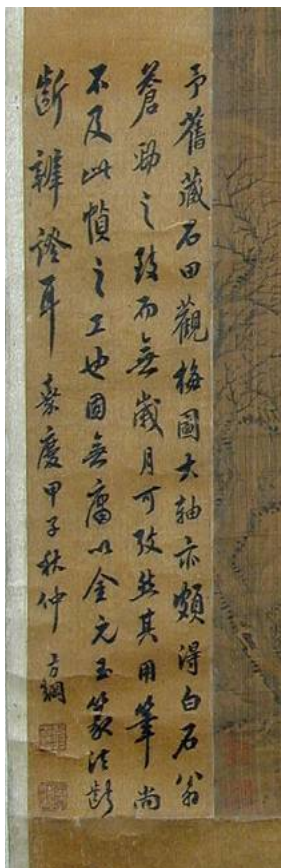 予舊藏石田觀梅圖大軸亦頗得白石翁
蒼勁之致而無歲月可攷然其用筆尚
不及此幀之工也固無庸以金元玉篆法齗
齗辨證耳 嘉慶甲子秋仲 方綱